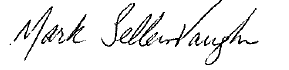 Mark Sellers Vaughn